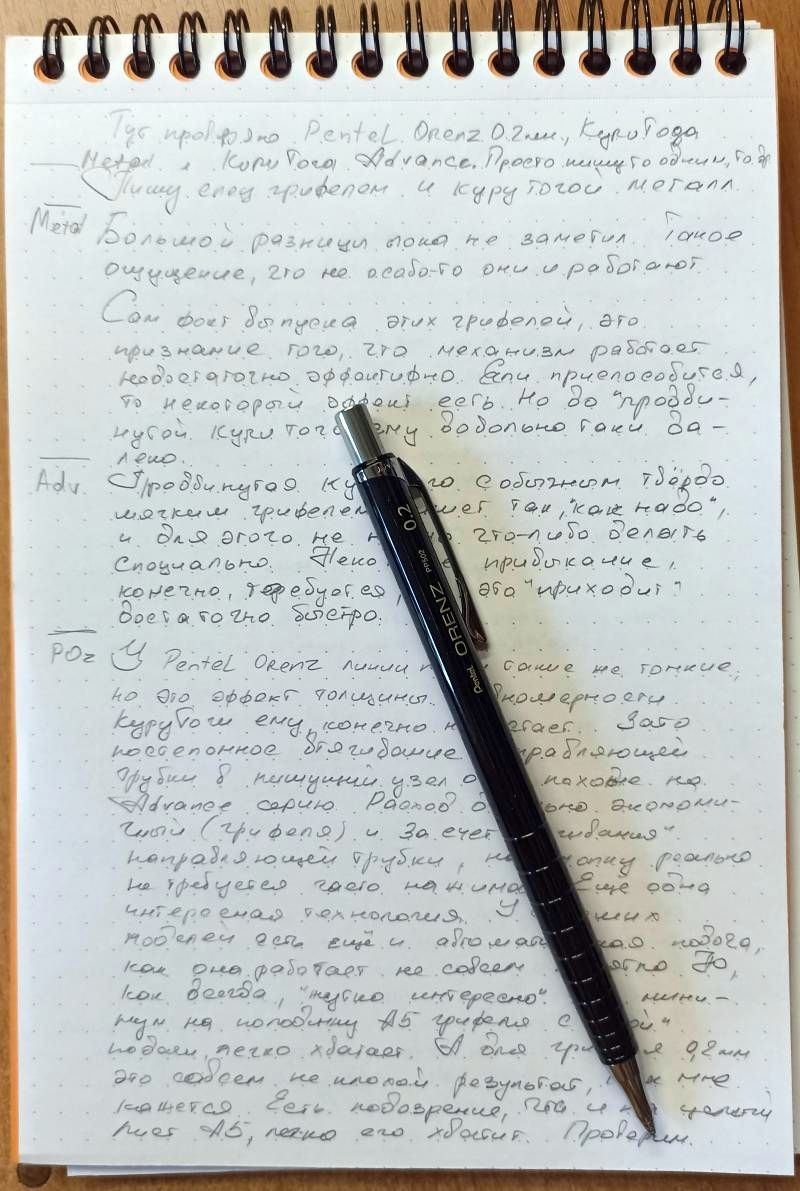 Тут проверяю Pentel Orenz 0.2мм., КуруТога
Metal и КуруТога Advance. Просто пишу то одним, то др.
Пишу спец грифелем и куру тогой металл.
Metal Большой разницы пока не заметил. Такое
ощущение, что не особо-то они и работают
Сам факт выпуска этих грифелей, это
признание того, что механизм работает
недостаточно эффективно. Если приспособится,
то некоторый эффект есть. Но до "продви-
нутой Куру тоги ему довольно таки да-
леко.
Adv. Продвинутая Ку го с обычным твёрдо
мягким грифелем шет так, "как надо",
и для этого не н о что-либо делать
специально. Неко е привыкание,
конечно, требуется, это "приходит"
достаточно быстро.
POz У Pentel Orenz линии п такие же тонкие,
но это эффект толщины. вномерности
КуруТоги ему, конечно н стает. Зато
постепенное втягивание правляющей
трубки в пишущий узел о похоже на
Advance серию. Расход д льно экономи-
чный (грифеля) и за счет гивания"
направляющей трубки, на нопку реально
не требуется часто нажима Еще одна
интересная технология. У их
моделей есть ещё и автомати ская подача,
как она работает не совсем ятно. Но,
как всегда, "жутко интересно". мини-
мум на половинку А5 грифеля с ой"
подачи, легко хватает. А для гри я 0,2мм
это совсем не плохой результат, к мне
кажется. Есть подозрение, что и на целый
лист А5, легко его хватит. Проверим.
Pentel ORENZ PP502 0.2